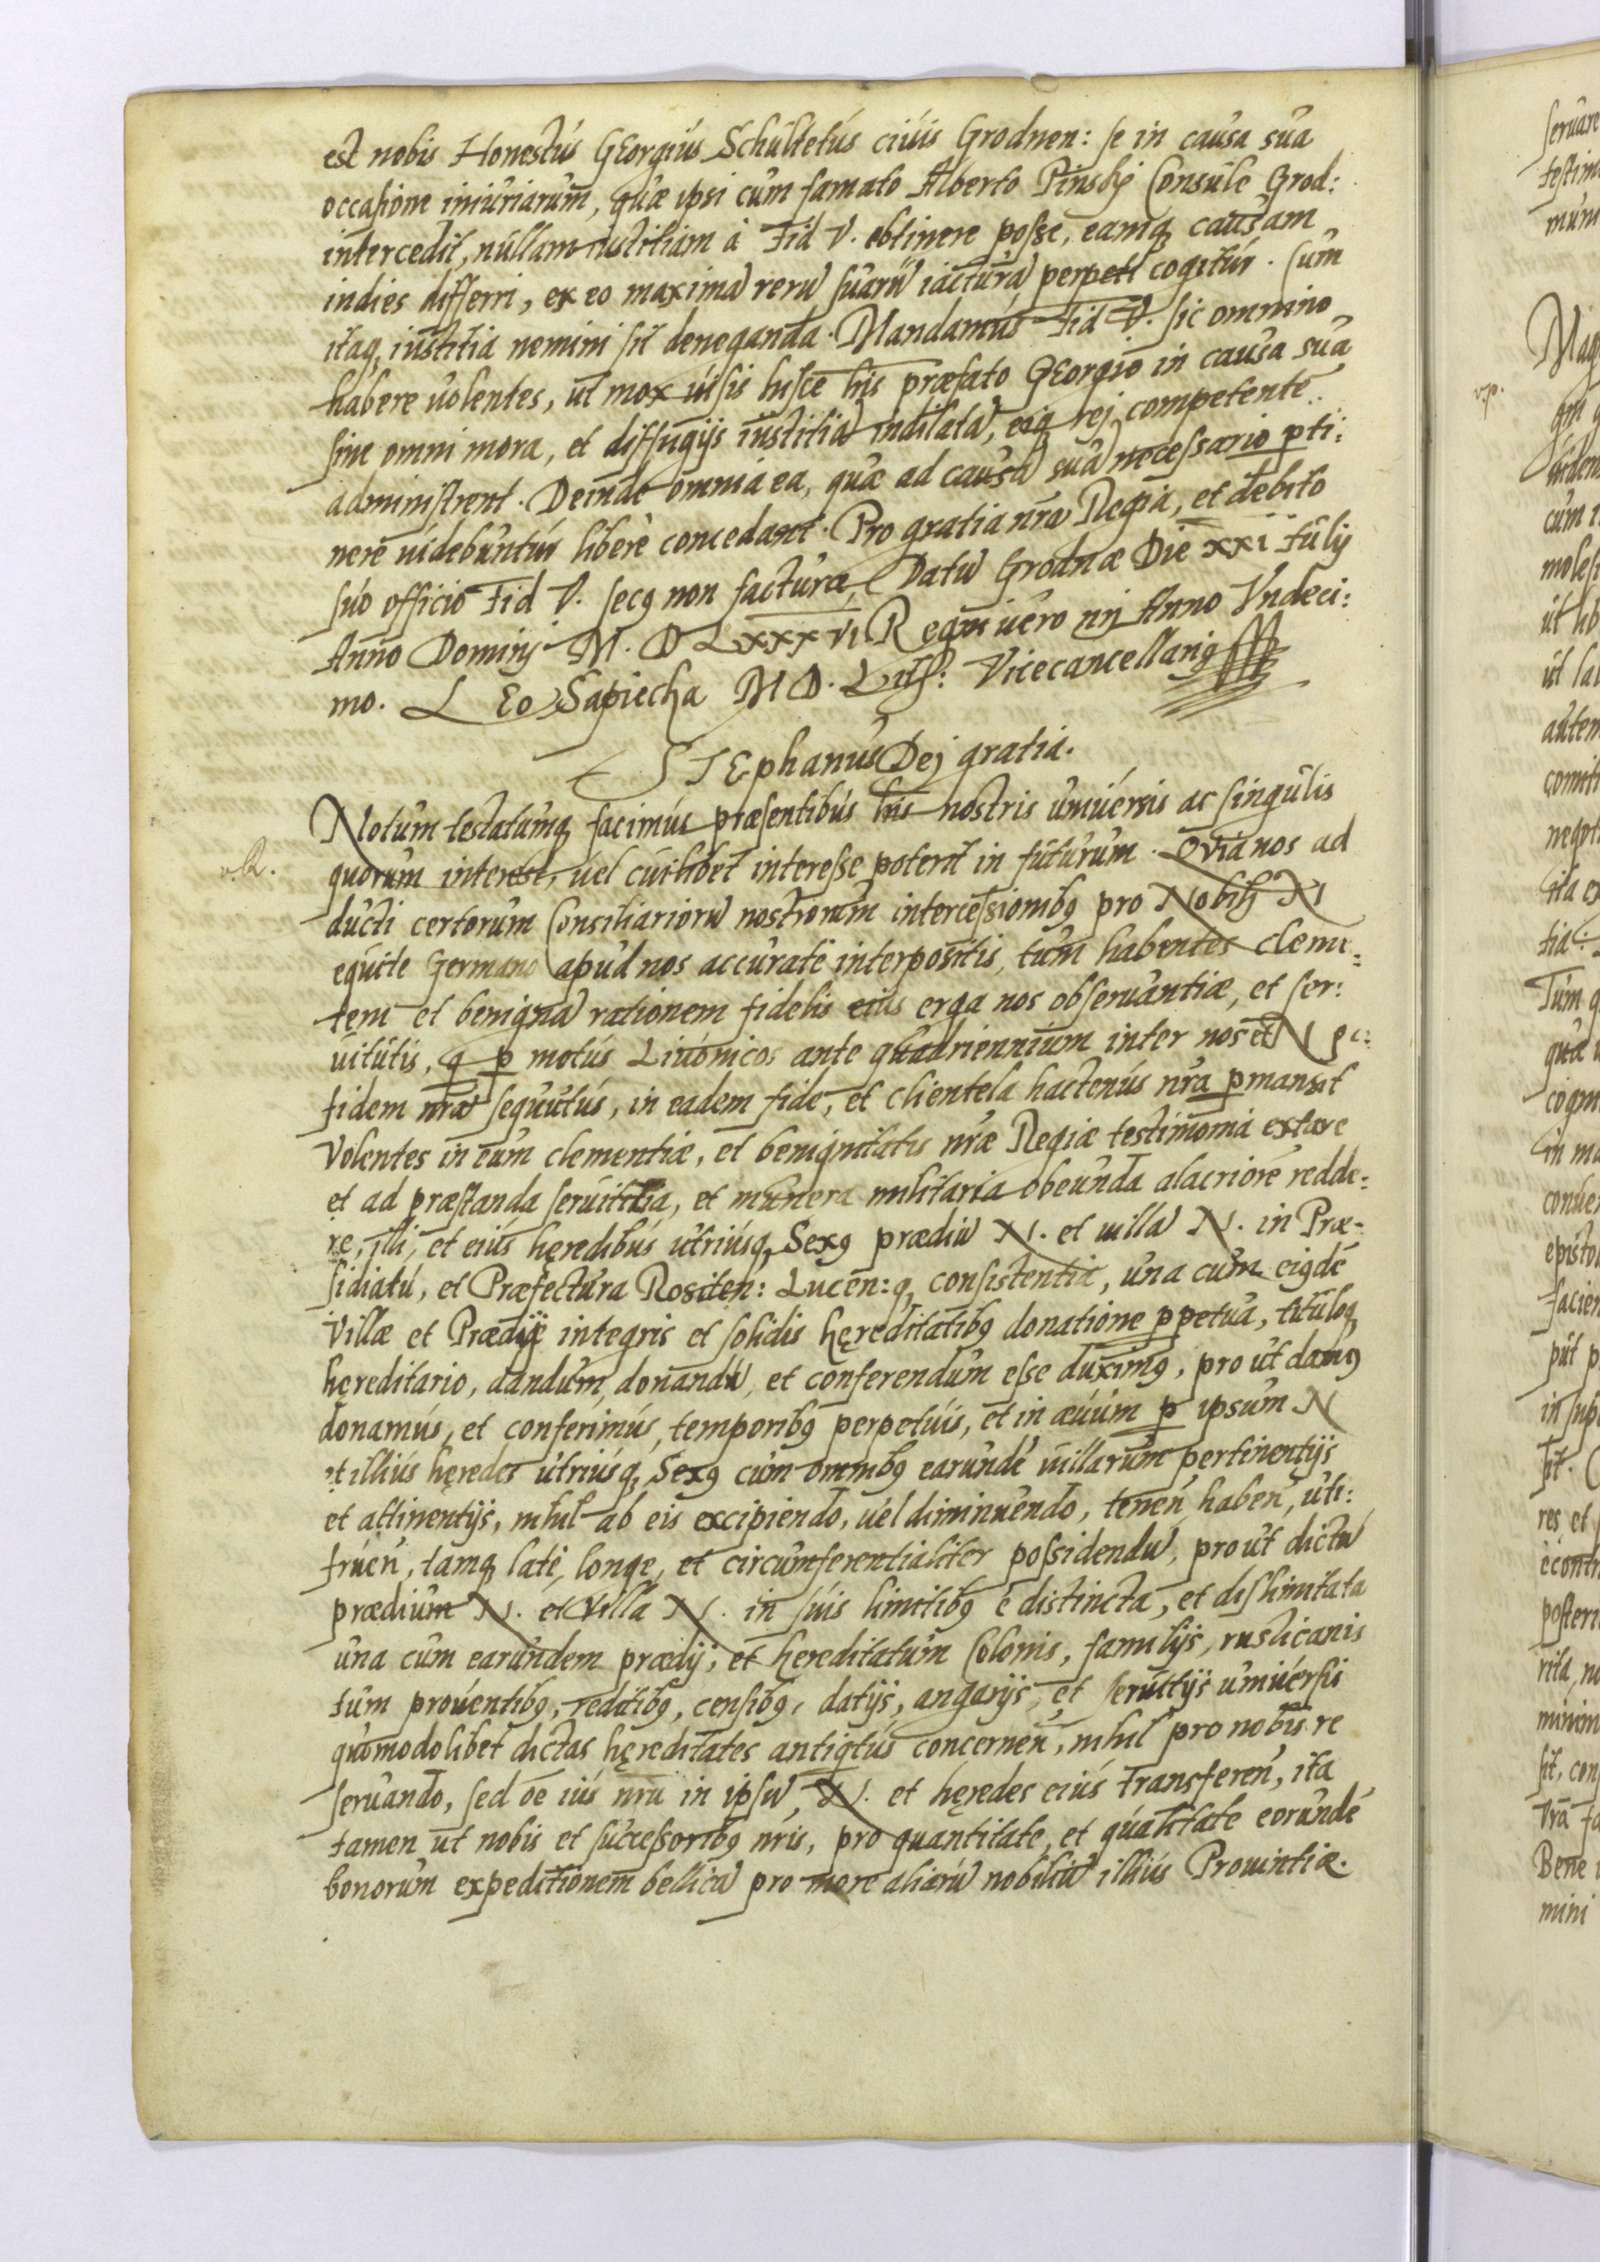 est nobis Honestus GEorgius Schultetus ciuis Grodnen: se in causa sua
occasione iniuriarum, quæ ipsi cum famato Alberto Pinsky Consule Grod:
intercedit, nullam iustitiam à Fid V. obtinere posse, eamq, causam
indies differri, ex eo maximā rerū suarū iacturā perpeti cogitur. Cum
itaq, iustitia nemini sit deneganda. Mandamus Fid V. sic omnino
habere uolentes, ut mox uisis hisce lris præfato GEorgio in causa sua
sine omni mora, et diffugijs iustitiā indilatā, eiq rej competentē
administrent. Deinde omnia ea, quæ ad causā suā necessario pti:
nere uidebuntur liberè concedant. Pro gratia nrā Regia, et debito
suo officio Fid V. secq non facturæ, Datū Grodnæ Die xxi Iulij
Anno Dominj M. D LXXXVI. Regni uero nrj Anno Vndeci:
mo. LEo Sapiecha M D. Lith: Vicecancellariq
STEphanus Dej gratia.
Notum testatumq, facimus præsentibus lris nostris uniuersis ac singulis
quorum interest, uel cuilibet interesse poterit in futurum. Qvia nos ad
ducti certorum Consiliariorū nostrorum intercessionibq pro Nobili N
equite Germano apud nos accuratè interpositis, tum habentes cleme:
tem et benignā rationem fidelis eius erga nos obseruantiæ, et ser:
uitutis, q p motus Liuonicos ante quadriennium inter nos et N
fidem nrā sequutus, in eadem fide, et clientela hactenus nrā pmansit
Volentes in eum clementiæ, et benignitatis nræ Regiæ testimonia extare
et ad præstanda seruititia, et munera militaria obeunda alacriorē redde:
re, illi, et eius hęredibus utriusq, Sexq prædiū N. et uillā N. in Præ-
sidiatu, et Præfectura Rositen: Lucen:q, consistentia, una cum eiqdē
Villæ et Prædij integris et solidis hęreditatibq donatione ppetua, tituloq,
hęreditario, dandum, donandū, et conferendum esse duximq, prout damq
donamus, et conferimus, temporibq perpetuis, et in æuum p ipsum N
et illius hęredes utriusq, Sexq cum omnibq earundē uillarum pertinentijs
et attinentijs, nihil ab eis excipiendo, uel diminuendo, tenen̄ haben̄, uti:
fruen̄, tamq, latè, longe, et circumferentialiter possidendū, prout dictū
prædium N. et Villa N. in suis limitibq ē distincta, et dislimitata
una cum earundem prædij, et hęreditatum Colonis, familijs, rusticanis
tum prouentibq, reditibq, censibq, datijs, angarijs, et seruitijs uniuersis
quomodolibet dictas hęreditates antiqitus concernen̄, nihil pro nobis re
seruando, sed oē ius nrū in ipsū N. et hęredes eius transferen̄, ita
tamen ut nobis et successoribq nris, pro quantitate, et qualitate eorundē
bonorum expeditionem bellicā pro more aliarū nobiliū illius Prouintiæ.